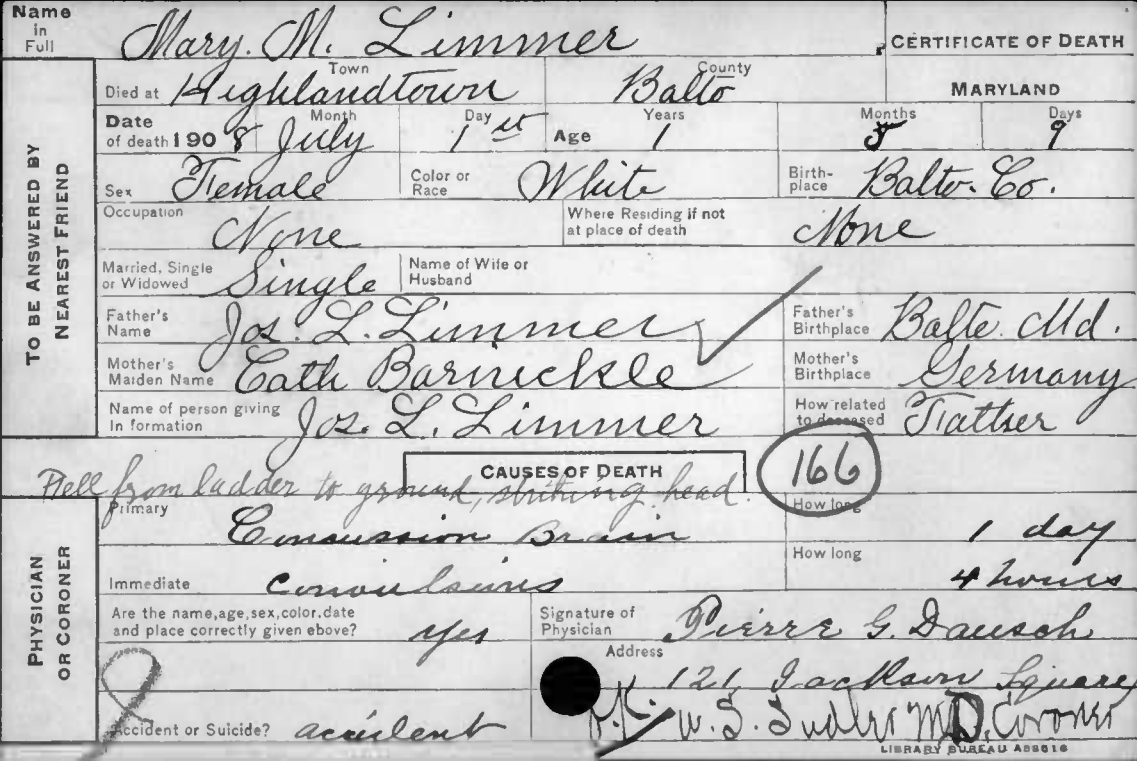 Name in Full Mary. M. Limmer CERTIFICATE OF DEATH
Died at Town Highlandtown County Balto MARYLAND
Date of death 1908 Month July Day 1st Age Years 1 Months 5 Days 9
Sex Female Color or Race White Birth-place Balto. Co.
Occupation None Where Residing if not at place of death None
Married, Single or Widowed Single Name of Wife or Husband
Father's Name Jos. L. Limmer Father's Birthplace Balto. Md.
Mother's Maiden Name Cath Barnickle Mother's Birthplace Germany
Name of person giving In formation Jos. L. Limmer How related to deceased Father
TO BE ANSWERED BY NEAREST FRIEND
CAUSES OF DEATH 166
Fell from ladder to ground, striking head.
Primary Concussion Brain How long 1 day
Immediate Convulsions How long 4 hours
Are the name, age, sex, color, date and place correctly given above? yes Signature of Physician Pierre G. Dausch
Address 121 Jackson Square
Accident or Suicide? accident O.K. W. S. Sudler M.D. Coroner
PHYSICIAN OR CORONER
LIBRARY BUREAU A88616